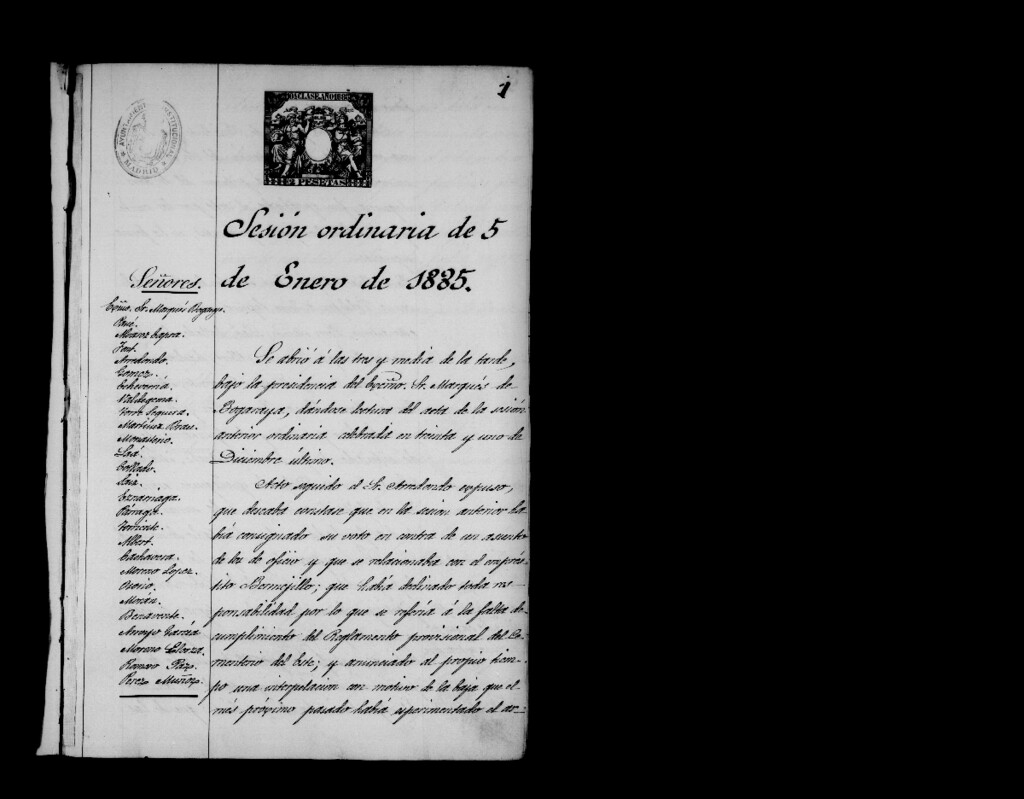 1
AYUNTAMIENTO CONSTITUCIONAL
* MADRID *
2 PESETAS
Sesión ordinaria de 5
de Enero de 1885.
Señores.
Exmo. Sr. Marqués Bogaraya.
Rané.
Alvarez Capra.
Font.
Arredondo.
Gomez.
Echeverría.
Valdegema.
Torre Segura.
Martinez Brau.
Monasterio.
Laá.
Collado.
Saiz.
Párraga.
Vorticente.
Albert.
Cachavera.
Moreno Lopez.
Osorio.
Morán.
Benavente.
Arroyo Garcia
Moreno Elorza.
Romero Paz.
Perez Muñoz.
Se abrió á las tres y media de la tarde,
bajo la presidencia del Exmo. Sr. Marqués de
Bogaraya, dándose lectura del acta de la sesión
anterior ordinaria celebrada en treinta y uno de
Diciembre último.
Acto seguido el Sr. Arredondo expuso,
que deseaba constase que en la sesion anterior ha
bía consignado su voto en contra de un asunto
de los de oficio y que se relacionaba con el emprés-
tito Bermejillo; que había declinado toda res-
ponsabilidad por lo que se referia á la falta de
cumplimiento del Reglamento provisional del Ce-
menterio del Este; y anunciado al propio tiem-
po una interpelacion con motivo de la baja que el
més próximo pasado había esperimentado el ar-